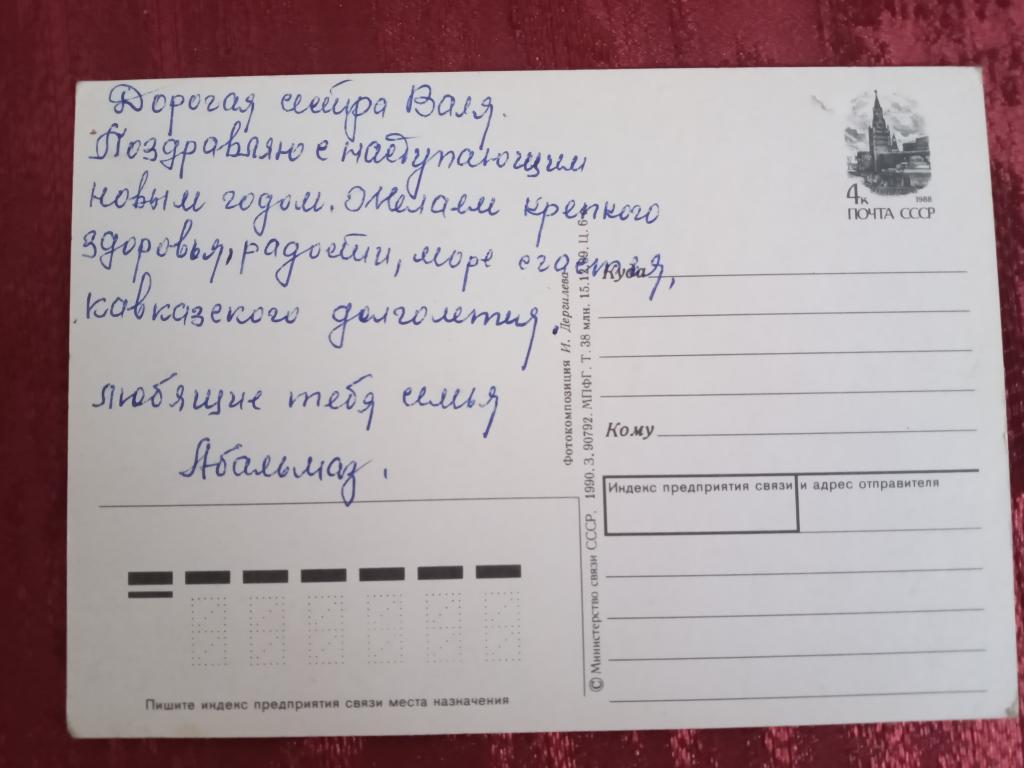 Дорогая сестра Валя.
Поздравляю с наступающим
новым годом. Желаем крепкого
здоровья, радости, море счастья,
кавказского долголетия.
любящие тебя семья
Абальмаз.
4к
1988
ПОЧТА СССР
Куда
Кому
Индекс предприятия связи и адрес отправителя
Фотокомпозиция И. Дергилева
© Министерство связи СССР. 1990. З. 90792. МПФГ. Т. 38 млн. 15.12.89. Ц. 6
Пишите индекс предприятия связи места назначения